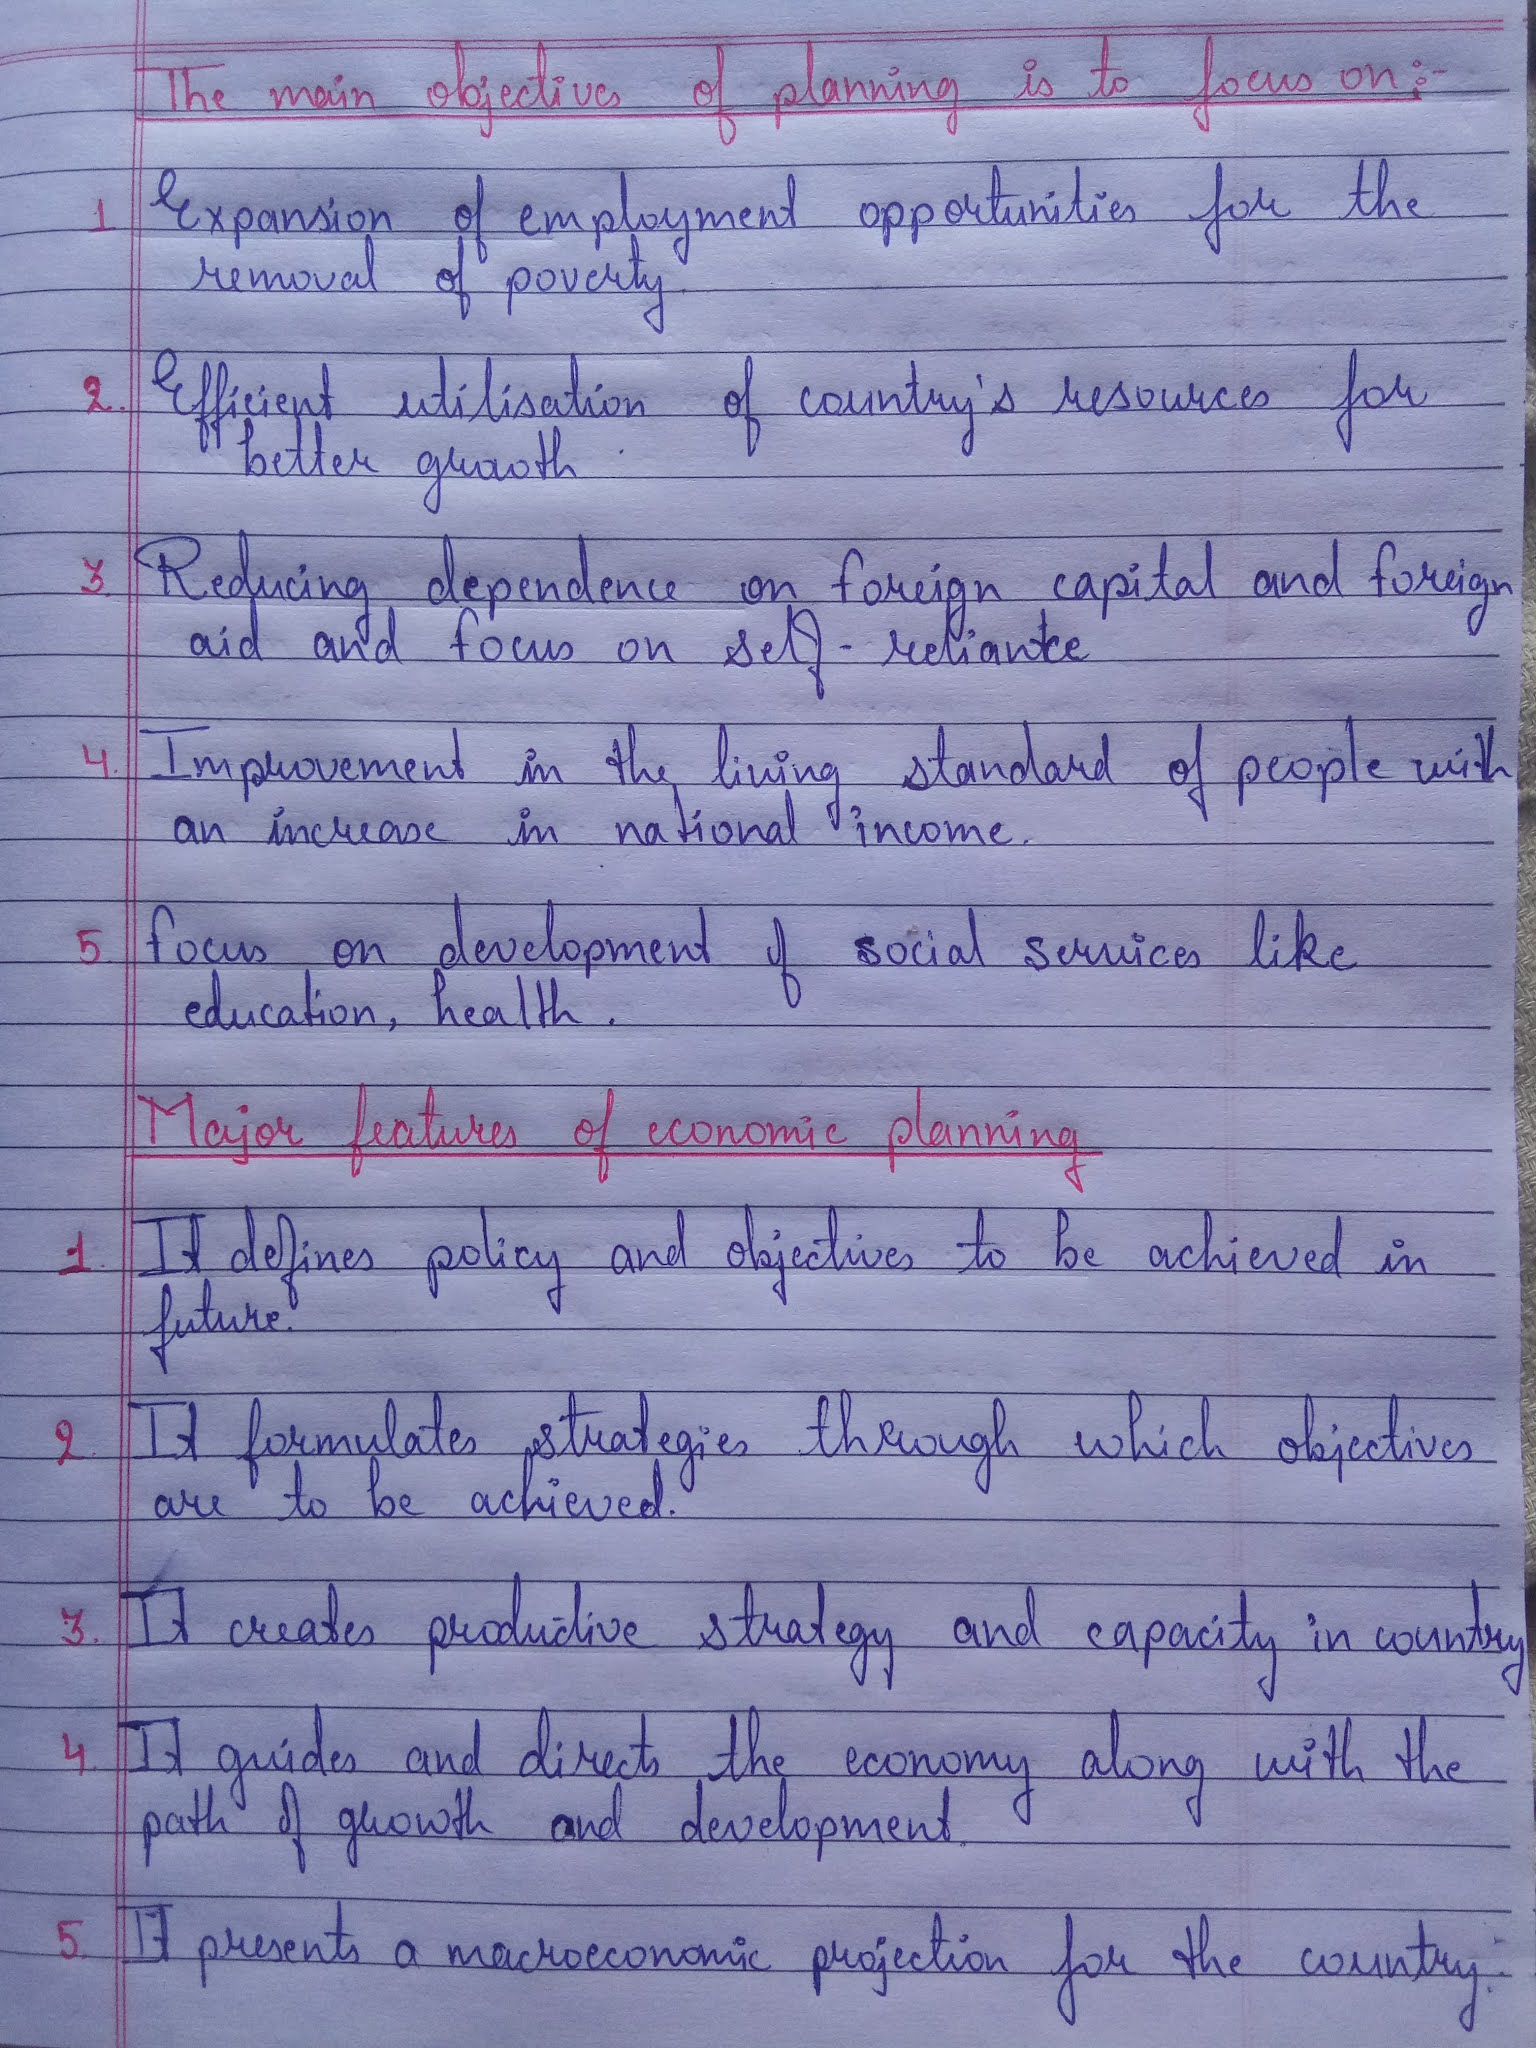 The main objectives of planning is to focus on:-
1 Expansion of employment opportunities for the
removal of poverty.
2. Efficient utilisation of country's resources for
better growth.
3. Reducing dependence on foreign capital and foreign
aid and focus on self-reliance
4. Improvement in the living standard of people with
an increase in national income.
5. focus on development of social services like
education, health.
Major features of economic planning
1. It defines policy and objectives to be achieved in
future.
2. It formulates strategies through which objectives
are to be achieved.
3. It creates productive strategy and capacity in country
4. It guides and directs the economy along with the
path of growth and development.
5. It presents a macroeconomic projection for the country.